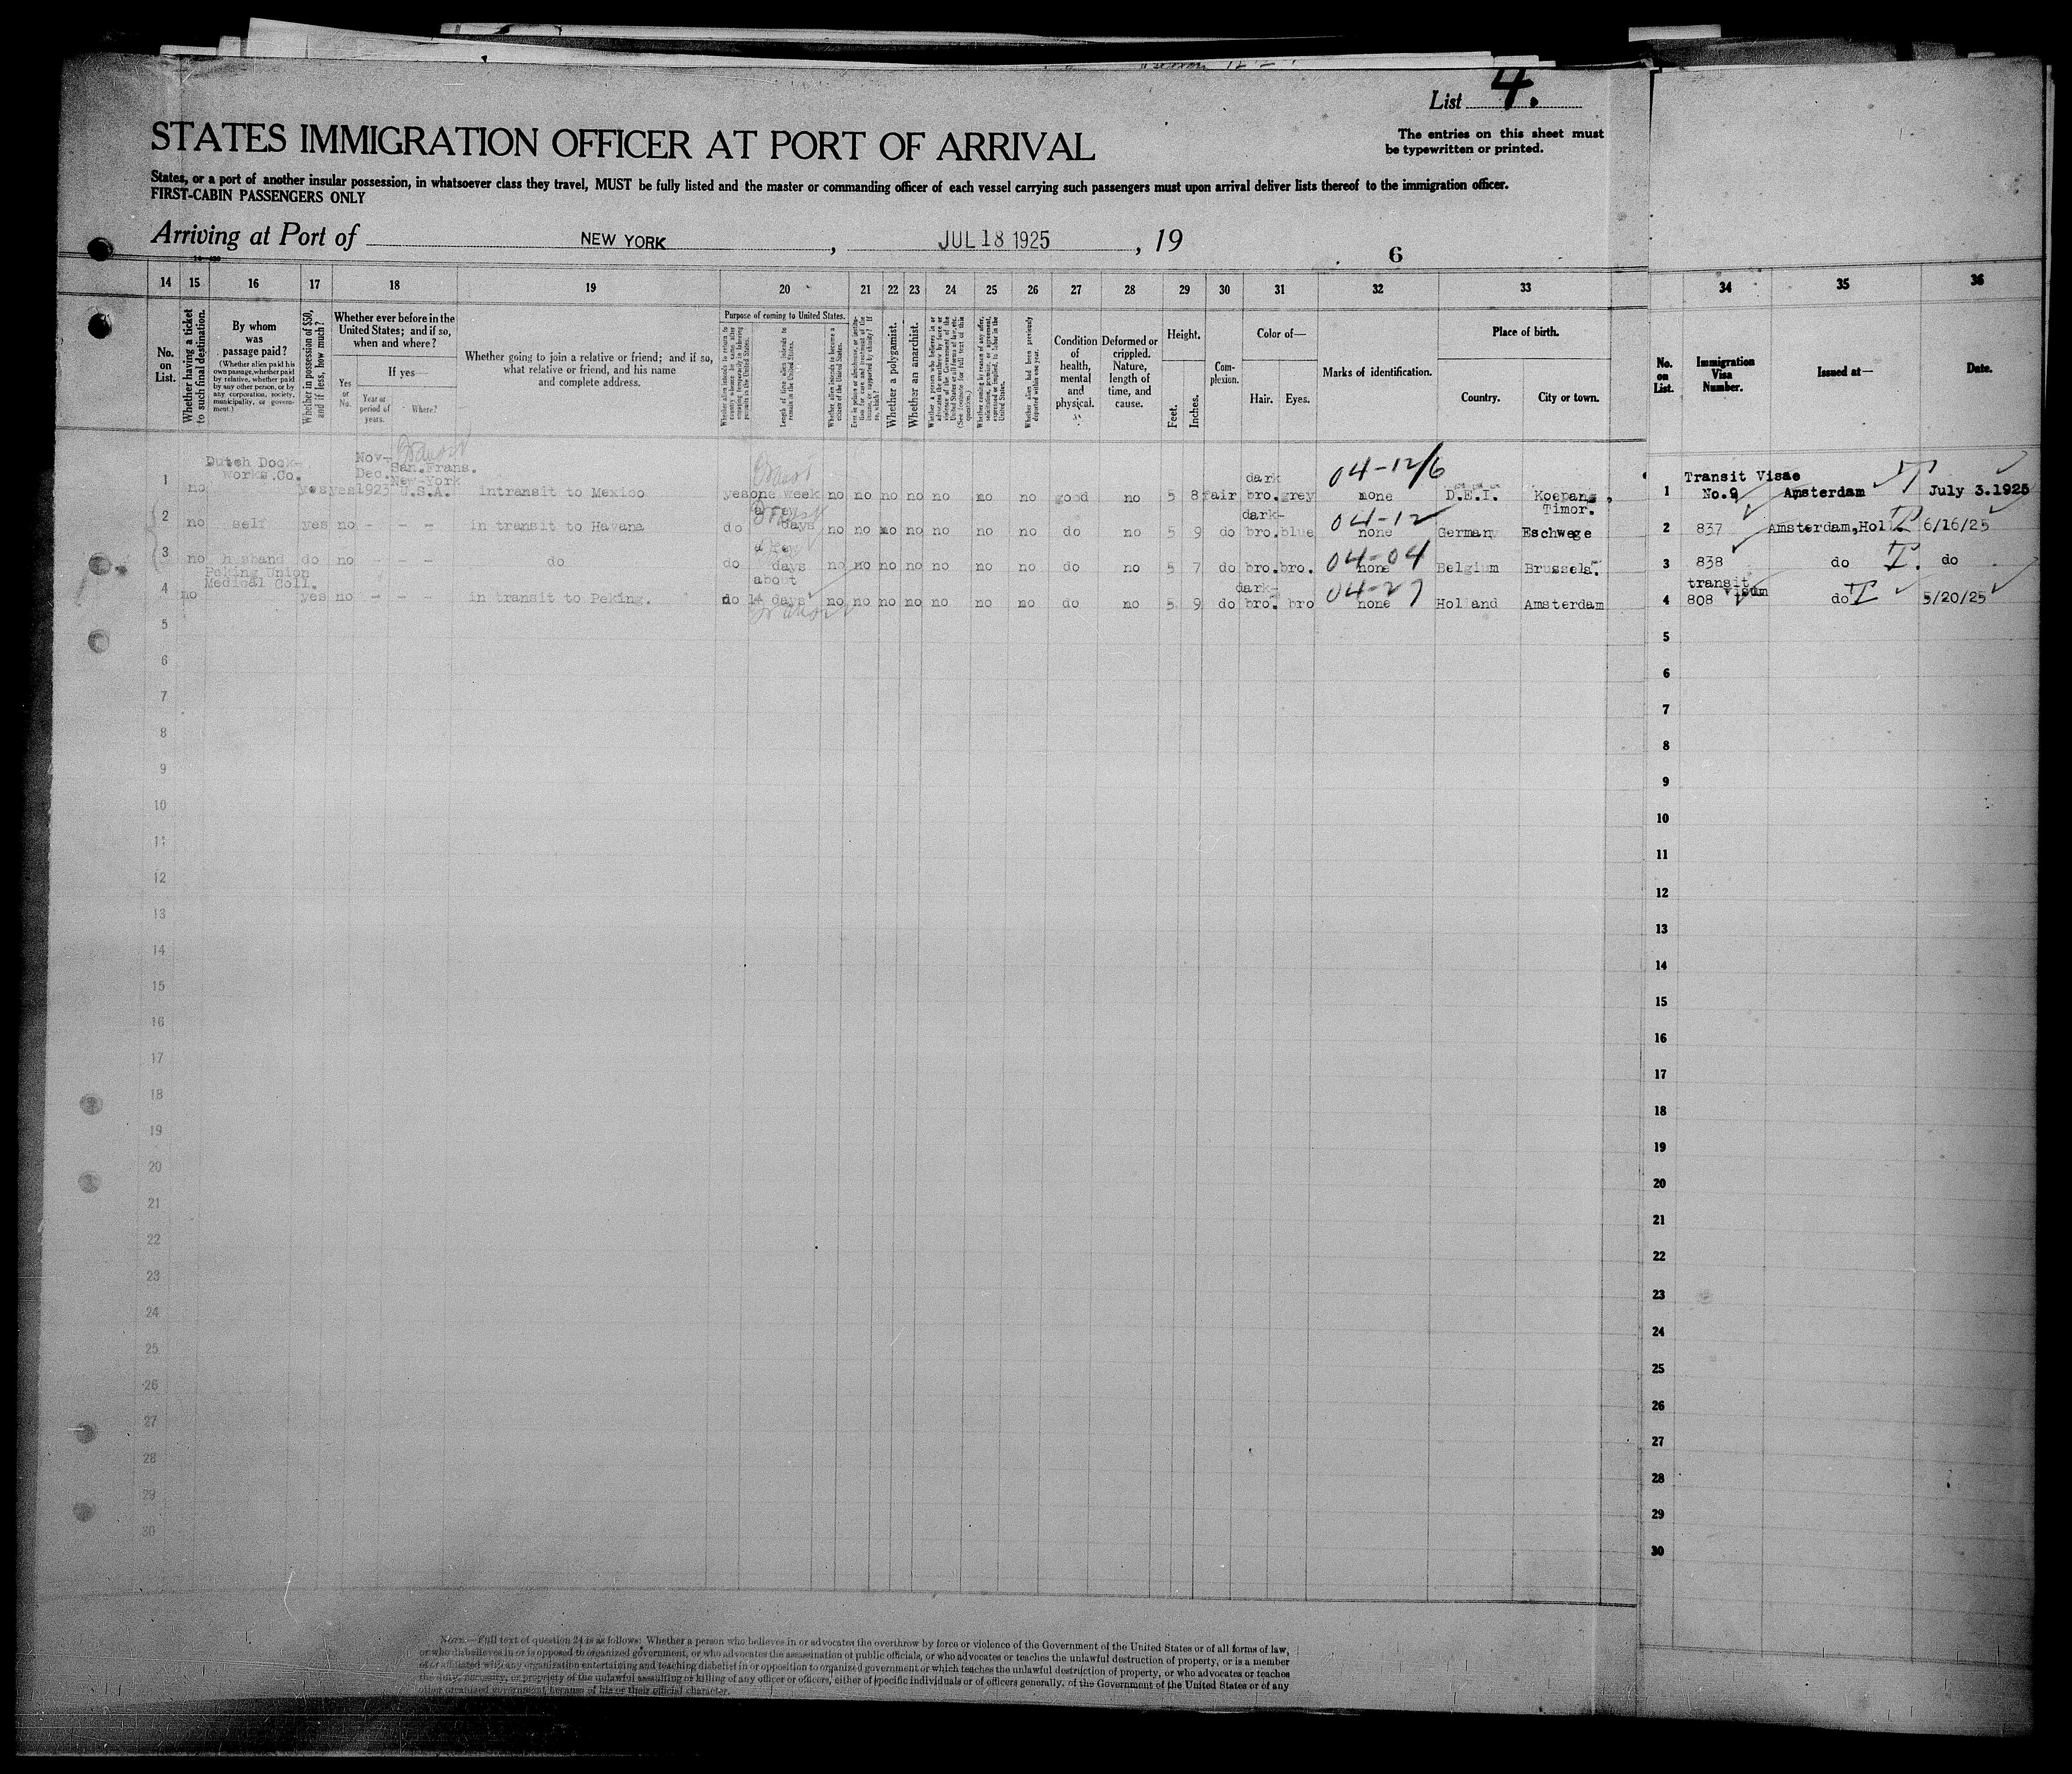 List 4.
STATES IMMIGRATION OFFICER AT PORT OF ARRIVAL
The entries on this sheet must
be typewritten or printed.
States, or a port of another insular possession, in whatsoever class they travel, MUST be fully listed and the master or commanding officer of each vessel carrying such passengers must upon arrival deliver lists thereof to the immigration officer.
FIRST-CABIN PASSENGERS ONLY
Arriving at Port of NEW YORK, JUL 18 1925, 19
6
14 15 16 17 18 19 20 21 22 23 24 25 26 27 28 29 30 31 32 33 34 35 36
No. on List.
Whether having a ticket to such final destination.
By whom was passage paid?
(Whether alien paid his own passage, whether paid by relative, whether paid by any other person, or by any corporation, society, municipality, or government.)
Whether in possession of $50, and if less, how much?
Whether ever before in the United States; and if so, when and where?
If yes—
Yes or No.
Year or period of years.
Where?
Whether going to join a relative or friend; and if so, what relative or friend, and his name and complete address.
Purpose of coming to United States.
Whether alien intends to return to country whence he came after engaging temporarily in laboring pursuits in the United States.
Length of time alien intends to remain in the United States.
Whether alien intends to become a citizen of the United States.
Whether a polygamist.
Whether an anarchist.
Whether alien had been previously deported within one year.
Condition of health, mental and physical.
Deformed or crippled. Nature, length of time, and cause.
Height.
Feet.
Inches.
Complexion.
Color of—
Hair. Eyes.
Marks of identification.
Place of birth.
Country. City or town.
No. on List.
Immigration Visa Number.
Issued at—
Date.
1 no Dutch Dock-works.Co. yes yes Nov-Dec.1923 San.Frans. New-York U.S.A. intransit to Mexico yes one week no no no no no no no good no 5 8 fair dark bro. grey none 04-12/6 D.E.I. Koepang, Timor.
1 Transit Visae No.9 Amsterdam T July 3.1925
2 no self yes no - - - in transit to Havana do a few days no no no no no no no do no 5 9 do dark-bro. blue none 04-12 Germany Eschwege
2 837 Amsterdam,Holl T 6/16/25
3 no husband do no - - - do do a few days no no no no no no no do no 5 7 do bro. bro. none 04-04 Belgium Brussels.
3 838 do T. do
4 no Peking Union Medical Coll. yes no - - - in transit to Peking. do about 14 days no no no no no no no do no 5 9 do dark-bro. bro none 04-27 Holland Amsterdam
4 transit visum 808 do T 5/20/25
5
6
7
8
9
10
11
12
13
14
15
16
17
18
19
20
21
22
23
24
25
26
27
28
29
30
NOTE.—Full text of question 24 is as follows: Whether a person who believes in or advocates the overthrow by force or violence of the Government of the United States or of all forms of law,
or who disbelieves in or is opposed to organized government, or who advocates the assassination of public officials, or who advocates or teaches the unlawful destruction of property, or is a member
of or affiliated with any organization entertaining and teaching disbelief in or opposition to organized government or which teaches the unlawful destruction of property, or who advocates or teaches
the duty, necessity, or propriety of the unlawful assaulting or killing of any officer or officers, either of specific individuals or of officers generally, of the Government of the United States or of any
other organized government because of his or their official character.